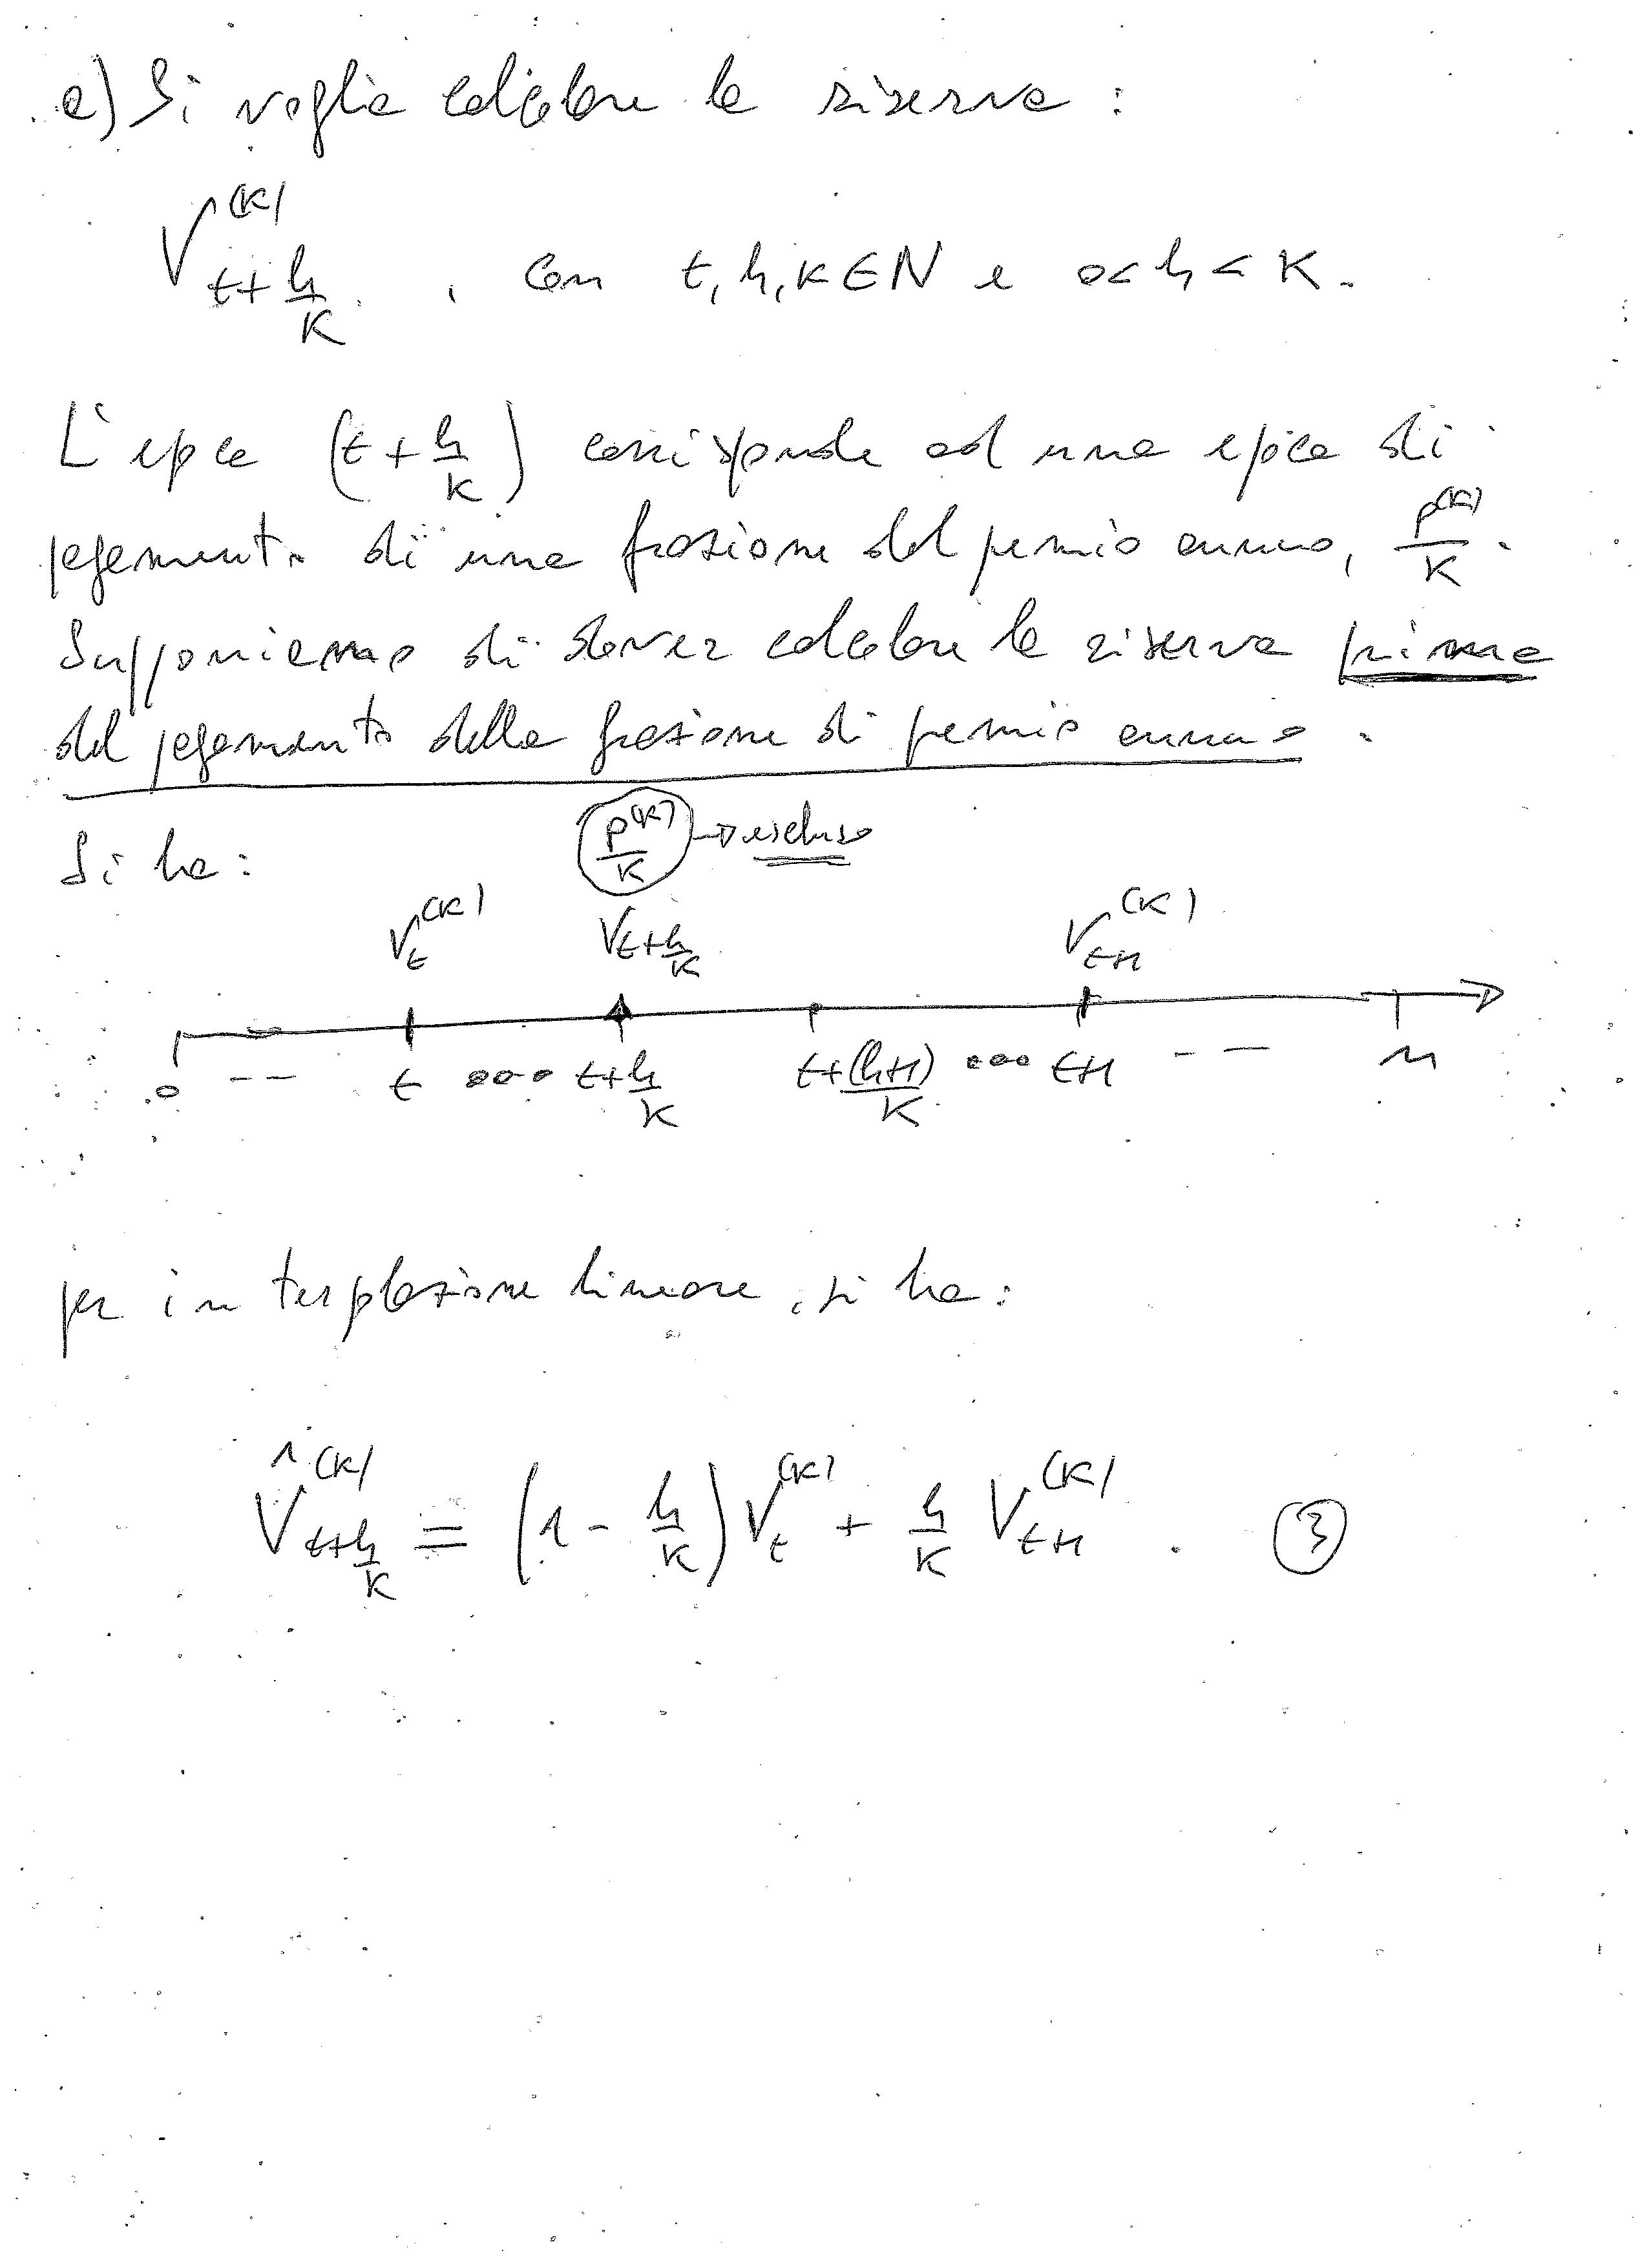 a) Si voglia calcolare la riserva:
V^(K)_{t+h/K}, con t, h, K ∈ N e 0<h<K.
L'epoca (t+h/K) corrisponde ad una epoca di
pagamento di una frazione del premio annuo, P^(K)/K.
Supponiamo di dover calcolare la riserva prima
del pagamento della frazione di premio annuo.
Si ha: P^(K)/K → escluso
V_t^(K) V_{t+h/K} V_{t+1}^(K)
0 -- t ... t+h/K t+(h+1)/K ... t+1 -- n
per interpolazione lineare, si ha:
V̂^(K)_{t+h/K} = (1 - h/K) V_t^(K) + h/K V_{t+1}^(K). ③